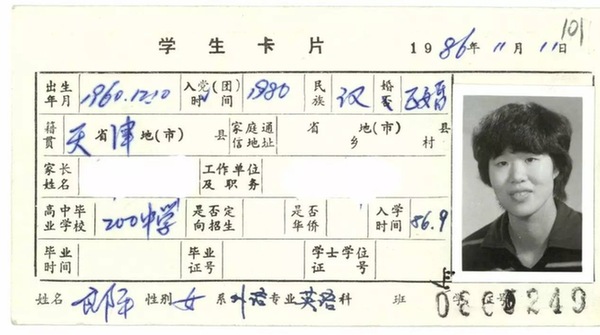 101
学生卡片 1986年11月11日
出生年月 1960.12.10 入党(团)时间 1980 民族 汉 婚否 已婚
籍贯 天省津地(市) 县 家庭通信地址 省 县 乡 村
家长姓名 工作单位及职务
高中毕业学校 200中学 是否定向招生 是否华侨 入学时间 86.9
毕业时间 毕业证号 学士学位证号
姓名 郎平 性别 女 系 外语 专业 英语 科 班 学 证号